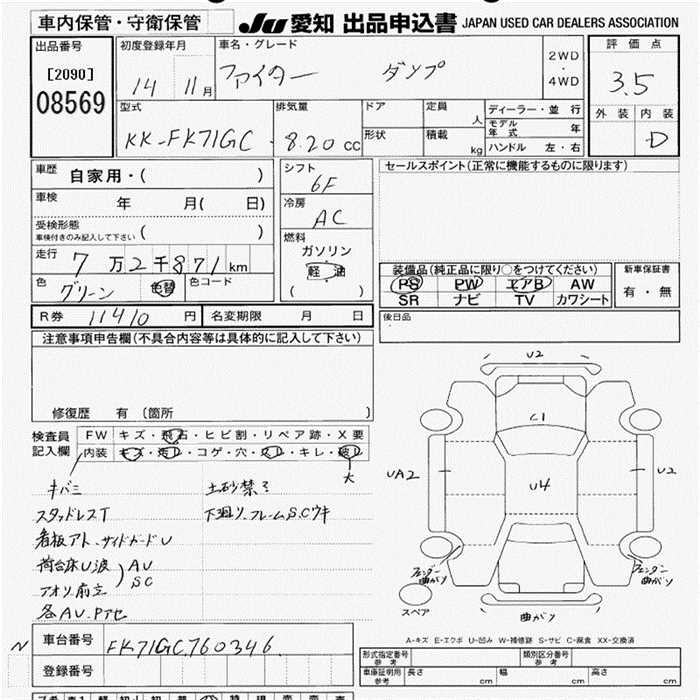 車内保管・守衛保管
JU 愛知 出品申込書 JAPAN USED CAR DEALERS ASSOCIATION
出品番号
[2090]
08569
初度登録年月
14 11月
車名・グレード
ファイター ダンプ
2WD
・
4WD
評価点
3.5
外装 内装
D
型式
KK-FK71GC
排気量
8.20 CC
ドア
定員
人
形状
積載
kg
ディーラー・並行
モデル年式 年
ハンドル 左・右
車歴
自家用・( )
車検
年 月( 日)
受検形態
車検付きのみ記入して下さい
( )
走行
7万2千871km
色
グリーン
色替
色コード
シフト
6F
冷房
AC
燃料
ガソリン
軽油
( )
セールスポイント(正常に機能するものに限ります)
装備品(純正品に限り○をつけてください)
PS PW エアB AW
SR ナビ TV カワシート
新車保証書
有・無
R券 11410円
名変期限 月 日
後日品
注意事項申告欄(不具合内容等は具体的に記入して下さい)
修復歴 有〔箇所 〕
検査員記入欄
FW キズ・飛石・ヒビ割・リペア跡・X要
内装
大
キバミ
スタッドレスT
看板アト・サイドガードU
荷台床U波
アオリ前立
AU
SC
各AU.Pアセ
土砂禁ミ
下廻り、フレームS.Cウキ
U2
C1
UA2
U4
U2
フェンダー曲がり
フェンダー曲がり
スペア
曲がり
A-キズ E-エクボ U-凹み W-補修跡 S-サビ C-腐食 XX-交換済
N
車台番号
FK71GC760346
登録番号
形式指定番号
参考
類別区分番号
参考
車庫証明用
参考
長さ cm
幅 cm
高さ cm